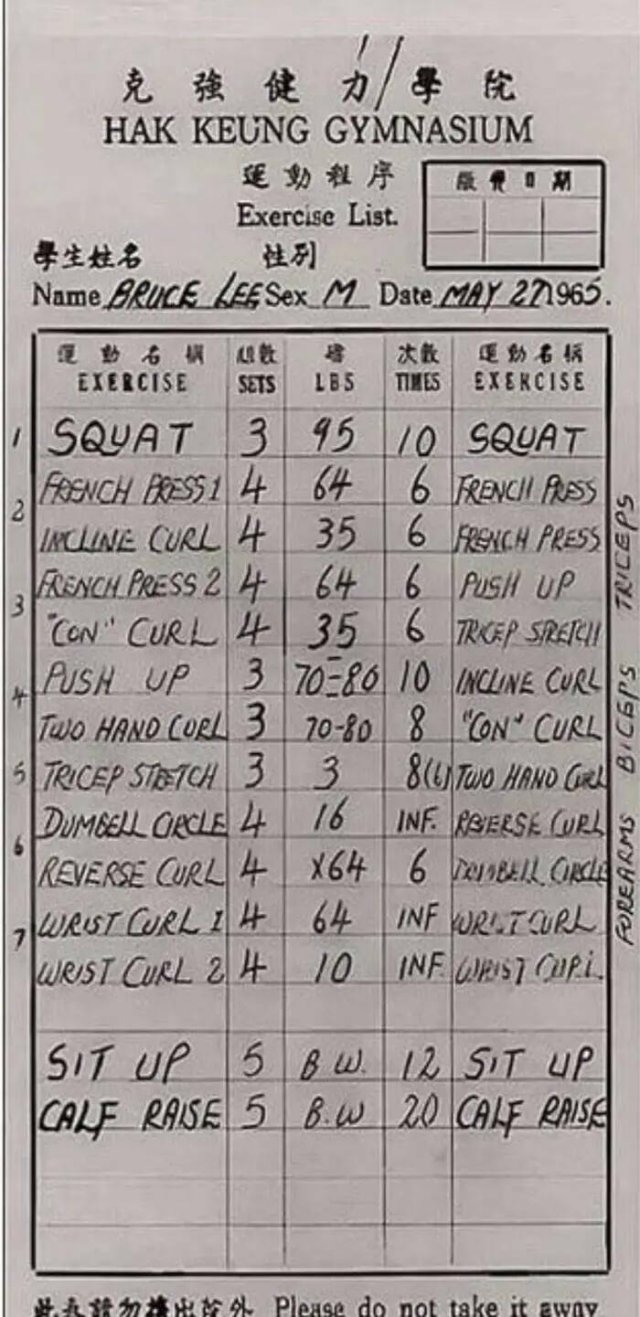 克強健力學院
HAK KEUNG GYMNASIUM
運動程序
Exercise List.
繳費日期
學生姓名 性別
Name BRUCE LEE Sex M Date MAY 27 1965.
運動名稱 組數 磅 次數 運動名稱
EXERCISE SETS LBS TIMES EXERCISE
1 SQUAT 3 95 10 SQUAT
2 FRENCH PRESS 1 4 64 6 FRENCH PRESS
INCLINE CURL 4 35 6 FRENCH PRESS
3 FRENCH PRESS 2 4 64 6 PUSH UP
"CON" CURL 4 35 6 TRICEP STRETCH
4 PUSH UP 3 70-80 10 INCLINE CURL
TWO HAND CURL 3 70-80 8 "CON" CURL
5 TRICEP STRETCH 3 3 8(6) TWO HAND CURL
DUMBELL CIRCLE 4 16 INF. REVERSE CURL
6 REVERSE CURL 4 X64 6 DUMBELL CIRCLE
7 WRIST CURL 1 4 64 INF WRIST CURL
WRIST CURL 2 4 10 INF WRIST CURL
SIT UP 5 B.W. 12 SIT UP
CALF RAISE 5 B.W 20 CALF RAISE
TRICEPS
BICEPS
FOREARMS
請勿攜出院外 Please do not take it away